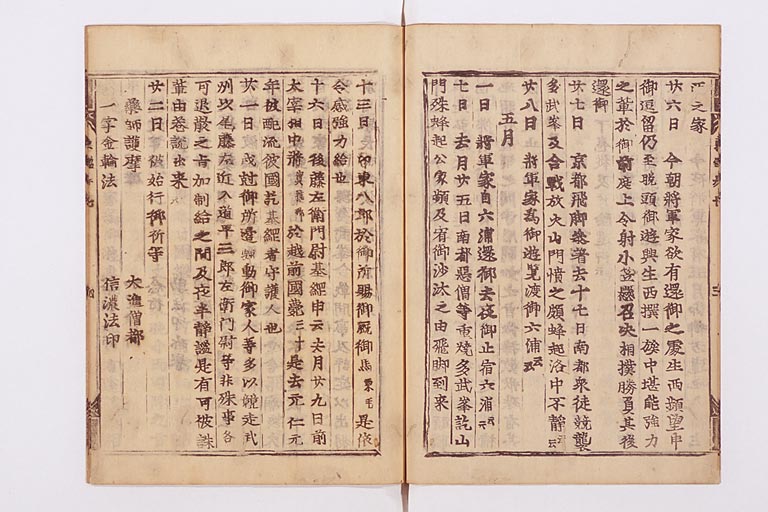 江之家
廿六日 今朝將軍家欲有還御之處生西頻望申
御逗留仍至晩頭御遊興生西撰一族中堪能強力
之輩於御前庭上令射小笠懸召決相撲勝負其後
還御
廿七日 京都飛脚參著去十七日南都衆徒競襲
多武峯及合戰放火山門憤之頗蜂起洛中不靜云云
廿八日 將軍家爲御遊覽渡御六浦云云
五月
一日 將軍家自六浦還御去夜御止宿六浦云云
七日 去月廿五日南都惡僧等重燒多武峯訖山
門殊蜂起公家頻及宥御沙汰之由飛脚到來
十三日 印東八郎於御所賜御冠御馬栗毛是依
令感強力給也
十六日 後藤左衛門尉基經申云去月廿九日前
太宰相中將 於越前國薨三十是去元仁元
年被配流彼國訖基經者守護人也
廿一日 戌尅御所邊騷動御家人等多以競走武
州以尾藤左近入道平三郎左衛門尉等非殊事各
可退散之旨加制給之間及夜半靜謐是有可被誅
輩由巷説出來
廿二日 被始行御祈等
藥師護摩 大進僧都
一字金輪法 信濃法印